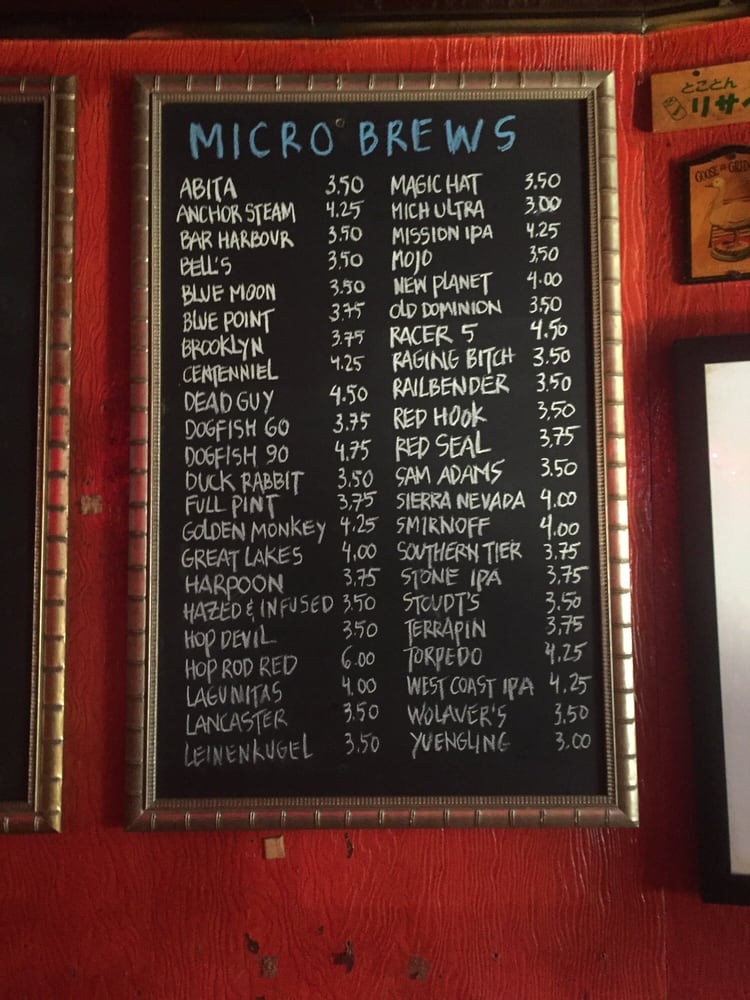 MICRO BREWS
ABITA 3.50
ANCHOR STEAM 4.25
BAR HARBOUR 3.50
BELL'S 3.50
BLUE MOON 3.50
BLUE POINT 3.75
BROOKLYN 3.75
CENTENNIEL 4.25
DEAD GUY 4.50
DOGFISH 60 3.75
DOGFISH 90 4.75
DUCK RABBIT 3.50
FULL PINT 3.75
GOLDEN MONKEY 4.25
GREAT LAKES 4.00
HARPOON 3.75
HAZED & INFUSED 3.50
HOP DEVIL 3.50
HOP ROD RED 6.00
LAGUNITAS 4.00
LANCASTER 3.50
LEINENKUGEL 3.50
MAGIC HAT 3.50
MICH ULTRA 3.00
MISSION IPA 4.25
MOJO 3.50
NEW PLANET 4.00
OLD DOMINION 3.50
RACER 5 4.50
RAGING BITCH 3.50
RAILBENDER 3.50
RED HOOK 3.50
RED SEAL 3.75
SAM ADAMS 3.50
SIERRA NEVADA 4.00
SMIRNOFF 4.00
SOUTHERN TIER 3.75
STONE IPA 3.75
STOUDT'S 3.50
TERRAPIN 3.75
TORPEDO 4.25
WEST COAST IPA 4.25
WOLAVER'S 3.50
YUENGLING 3.00
とことん
リサイ